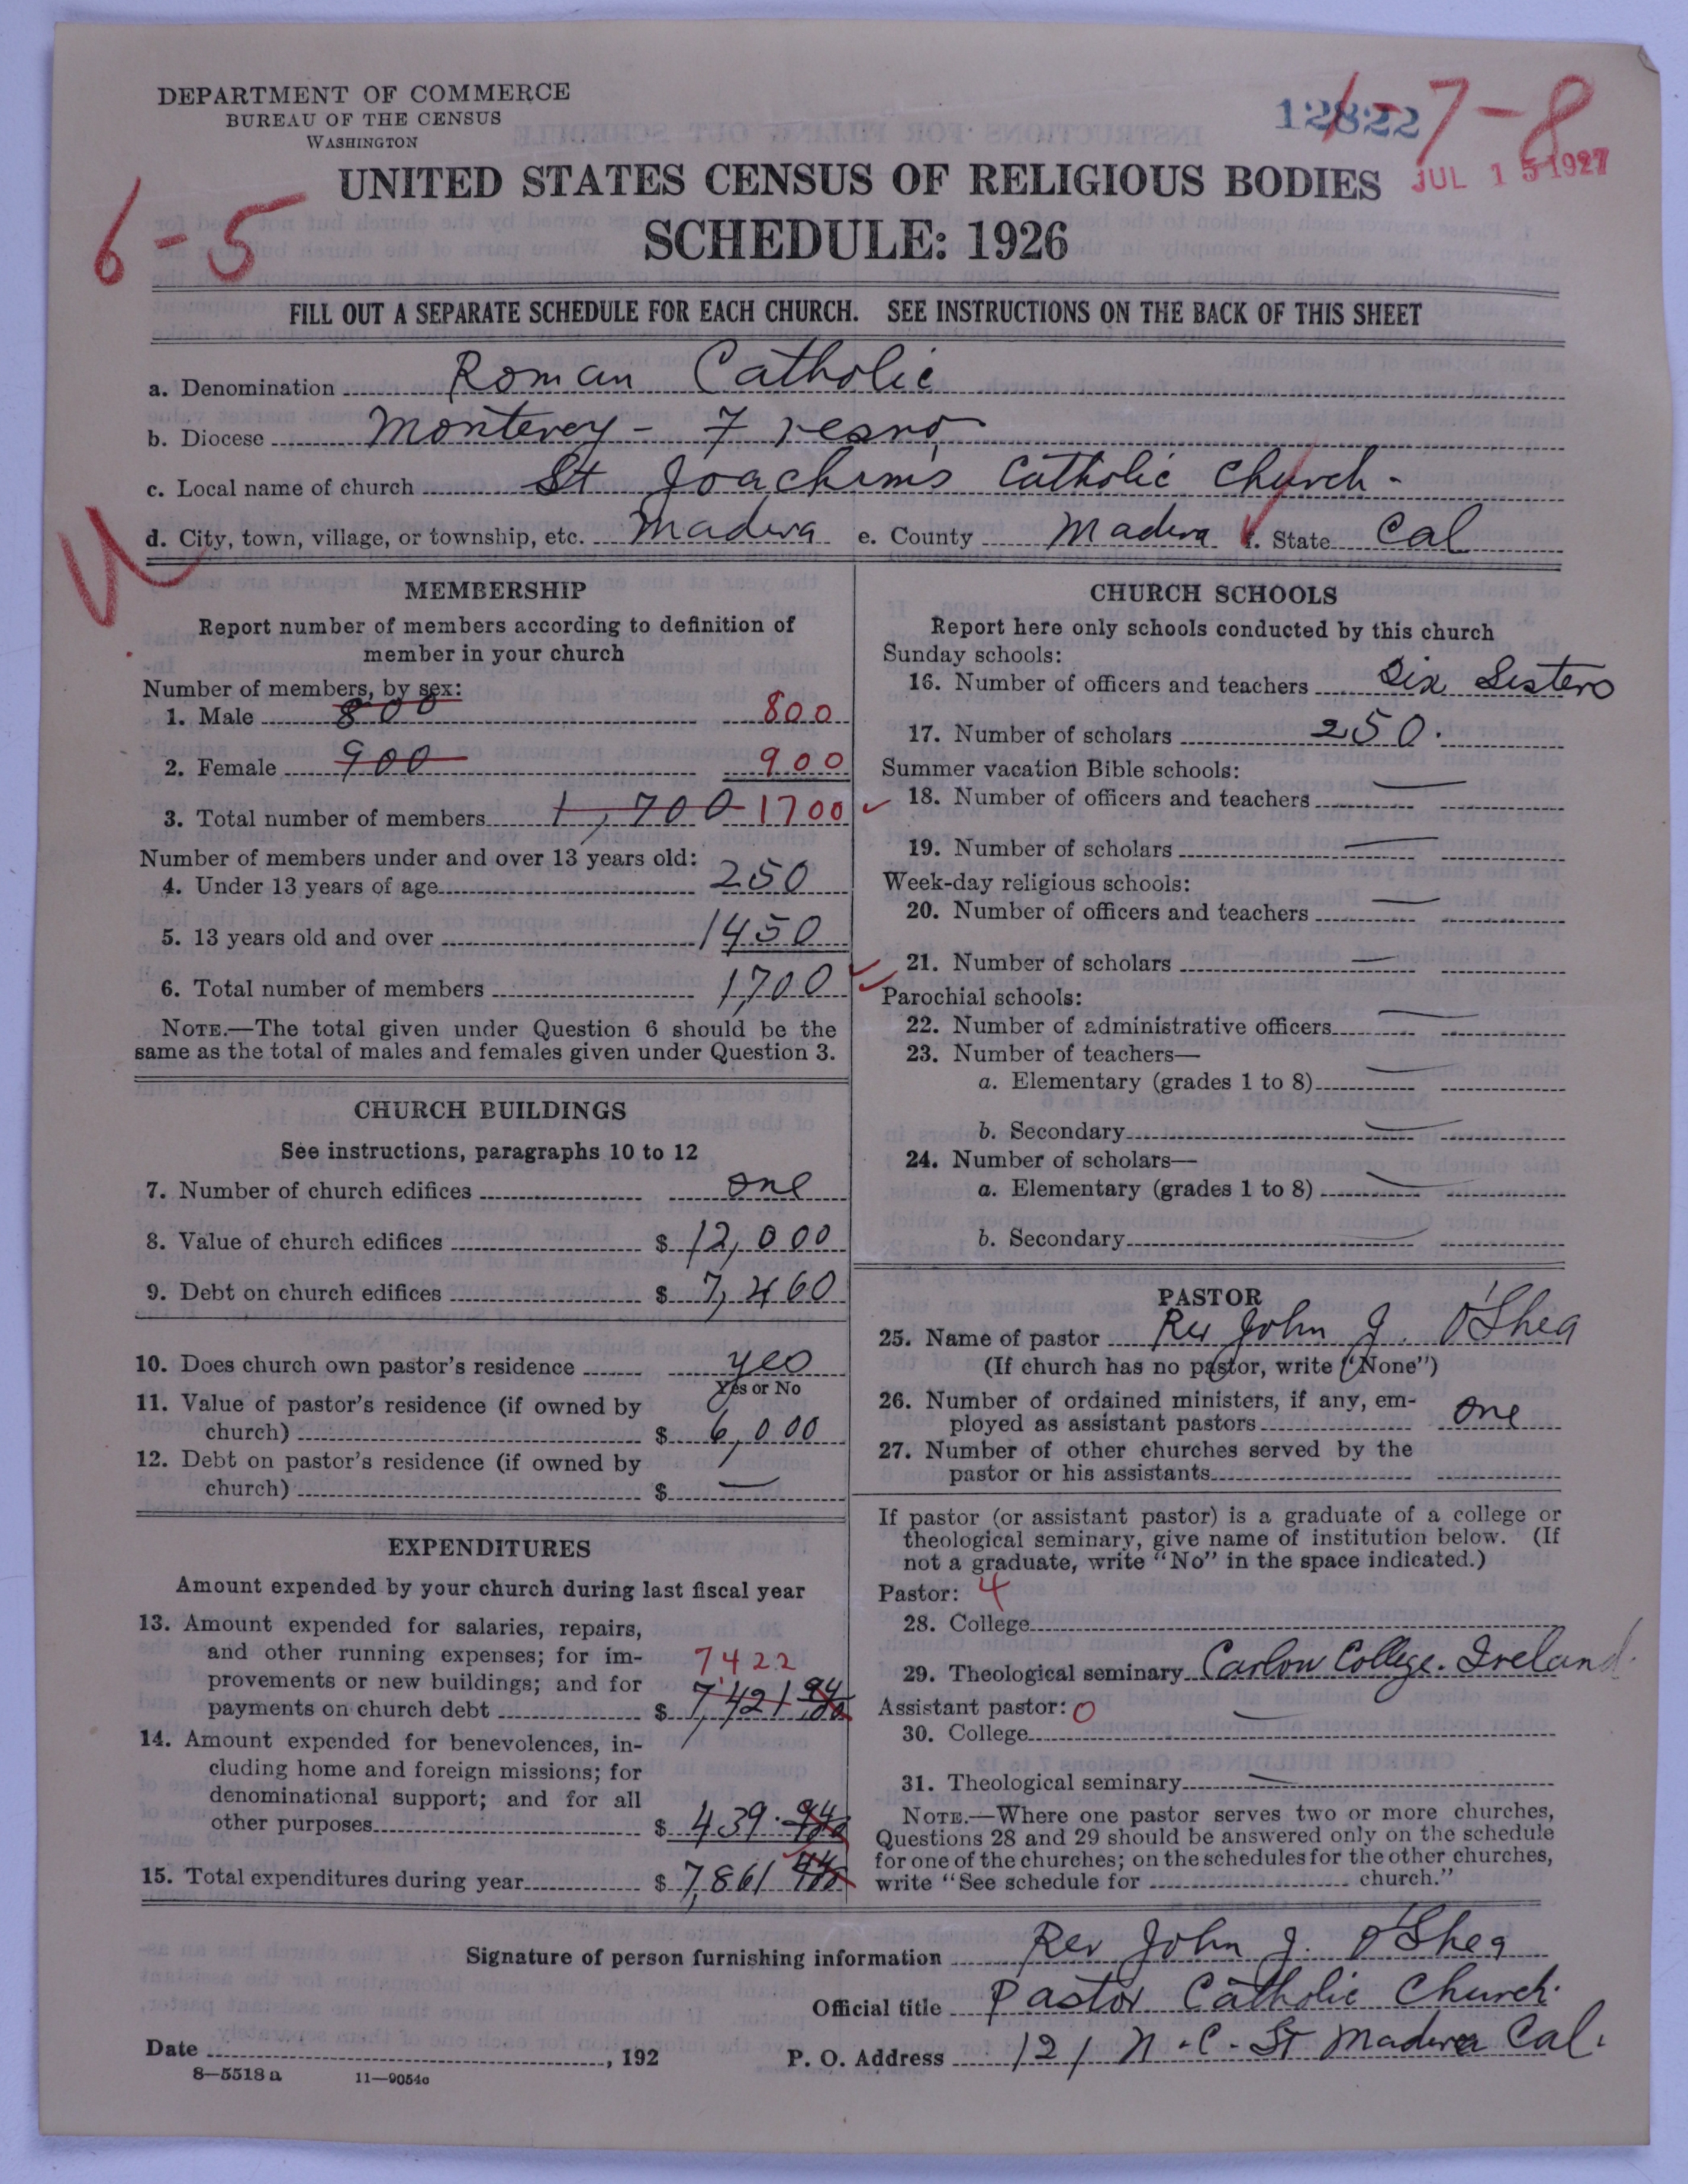 DEPARTMENT OF COMMERCE
BUREAU OF THE CENSUS
WASHINGTON
12822
1-7-8
JUL 15 1927
UNITED STATES CENSUS OF RELIGIOUS BODIES
SCHEDULE: 1926
6-5
FILL OUT A SEPARATE SCHEDULE FOR EACH CHURCH. SEE INSTRUCTIONS ON THE BACK OF THIS SHEET
a. Denomination Roman Catholic
b. Diocese Monterey - Fresno
c. Local name of church St Joachim's Catholic Church -
d. City, town, village, or township, etc. Madera e. County Madera f. State Cal
MEMBERSHIP
Report number of members according to definition of
member in your church
Number of members, by sex:
1. Male 800 800
2. Female 900 900
3. Total number of members 1,700 1700
Number of members under and over 13 years old:
4. Under 13 years of age 250
5. 13 years old and over 1450
6. Total number of members 1,700
NOTE.—The total given under Question 6 should be the
same as the total of males and females given under Question 3.
CHURCH BUILDINGS
See instructions, paragraphs 10 to 12
7. Number of church edifices one
8. Value of church edifices $ 12,000
9. Debt on church edifices $ 7,460
10. Does church own pastor's residence yes
Yes or No
11. Value of pastor's residence (if owned by
church) $ 6,000
12. Debt on pastor's residence (if owned by
church) $ —
EXPENDITURES
Amount expended by your church during last fiscal year
13. Amount expended for salaries, repairs,
and other running expenses; for im-
provements or new buildings; and for
payments on church debt $ 7,421 94/100
7422
14. Amount expended for benevolences, in-
cluding home and foreign missions; for
denominational support; and for all
other purposes $ 439.
15. Total expenditures during year $ 7,861
CHURCH SCHOOLS
Report here only schools conducted by this church
Sunday schools:
16. Number of officers and teachers Six Sisters
17. Number of scholars 250.
Summer vacation Bible schools:
18. Number of officers and teachers —
19. Number of scholars —
Week-day religious schools:
20. Number of officers and teachers —
21. Number of scholars —
Parochial schools:
22. Number of administrative officers —
23. Number of teachers—
a. Elementary (grades 1 to 8) —
b. Secondary —
24. Number of scholars—
a. Elementary (grades 1 to 8) —
b. Secondary —
PASTOR
25. Name of pastor Rev John J. O'Shea
(If church has no pastor, write "None")
26. Number of ordained ministers, if any, em-
ployed as assistant pastors one
27. Number of other churches served by the
pastor or his assistants
If pastor (or assistant pastor) is a graduate of a college or
theological seminary, give name of institution below. (If
not a graduate, write "No" in the space indicated.)
Pastor: 4
28. College
29. Theological seminary Carlow College. Ireland.
Assistant pastor: 0
30. College —
31. Theological seminary —
NOTE.—Where one pastor serves two or more churches,
Questions 28 and 29 should be answered only on the schedule
for one of the churches; on the schedules for the other churches,
write "See schedule for church."
Signature of person furnishing information Rev John J. O'Shea
Official title Pastor Catholic Church.
Date , 192 P. O. Address 121 N. C. St Madera Cal.
8—5518 a 11—9054c